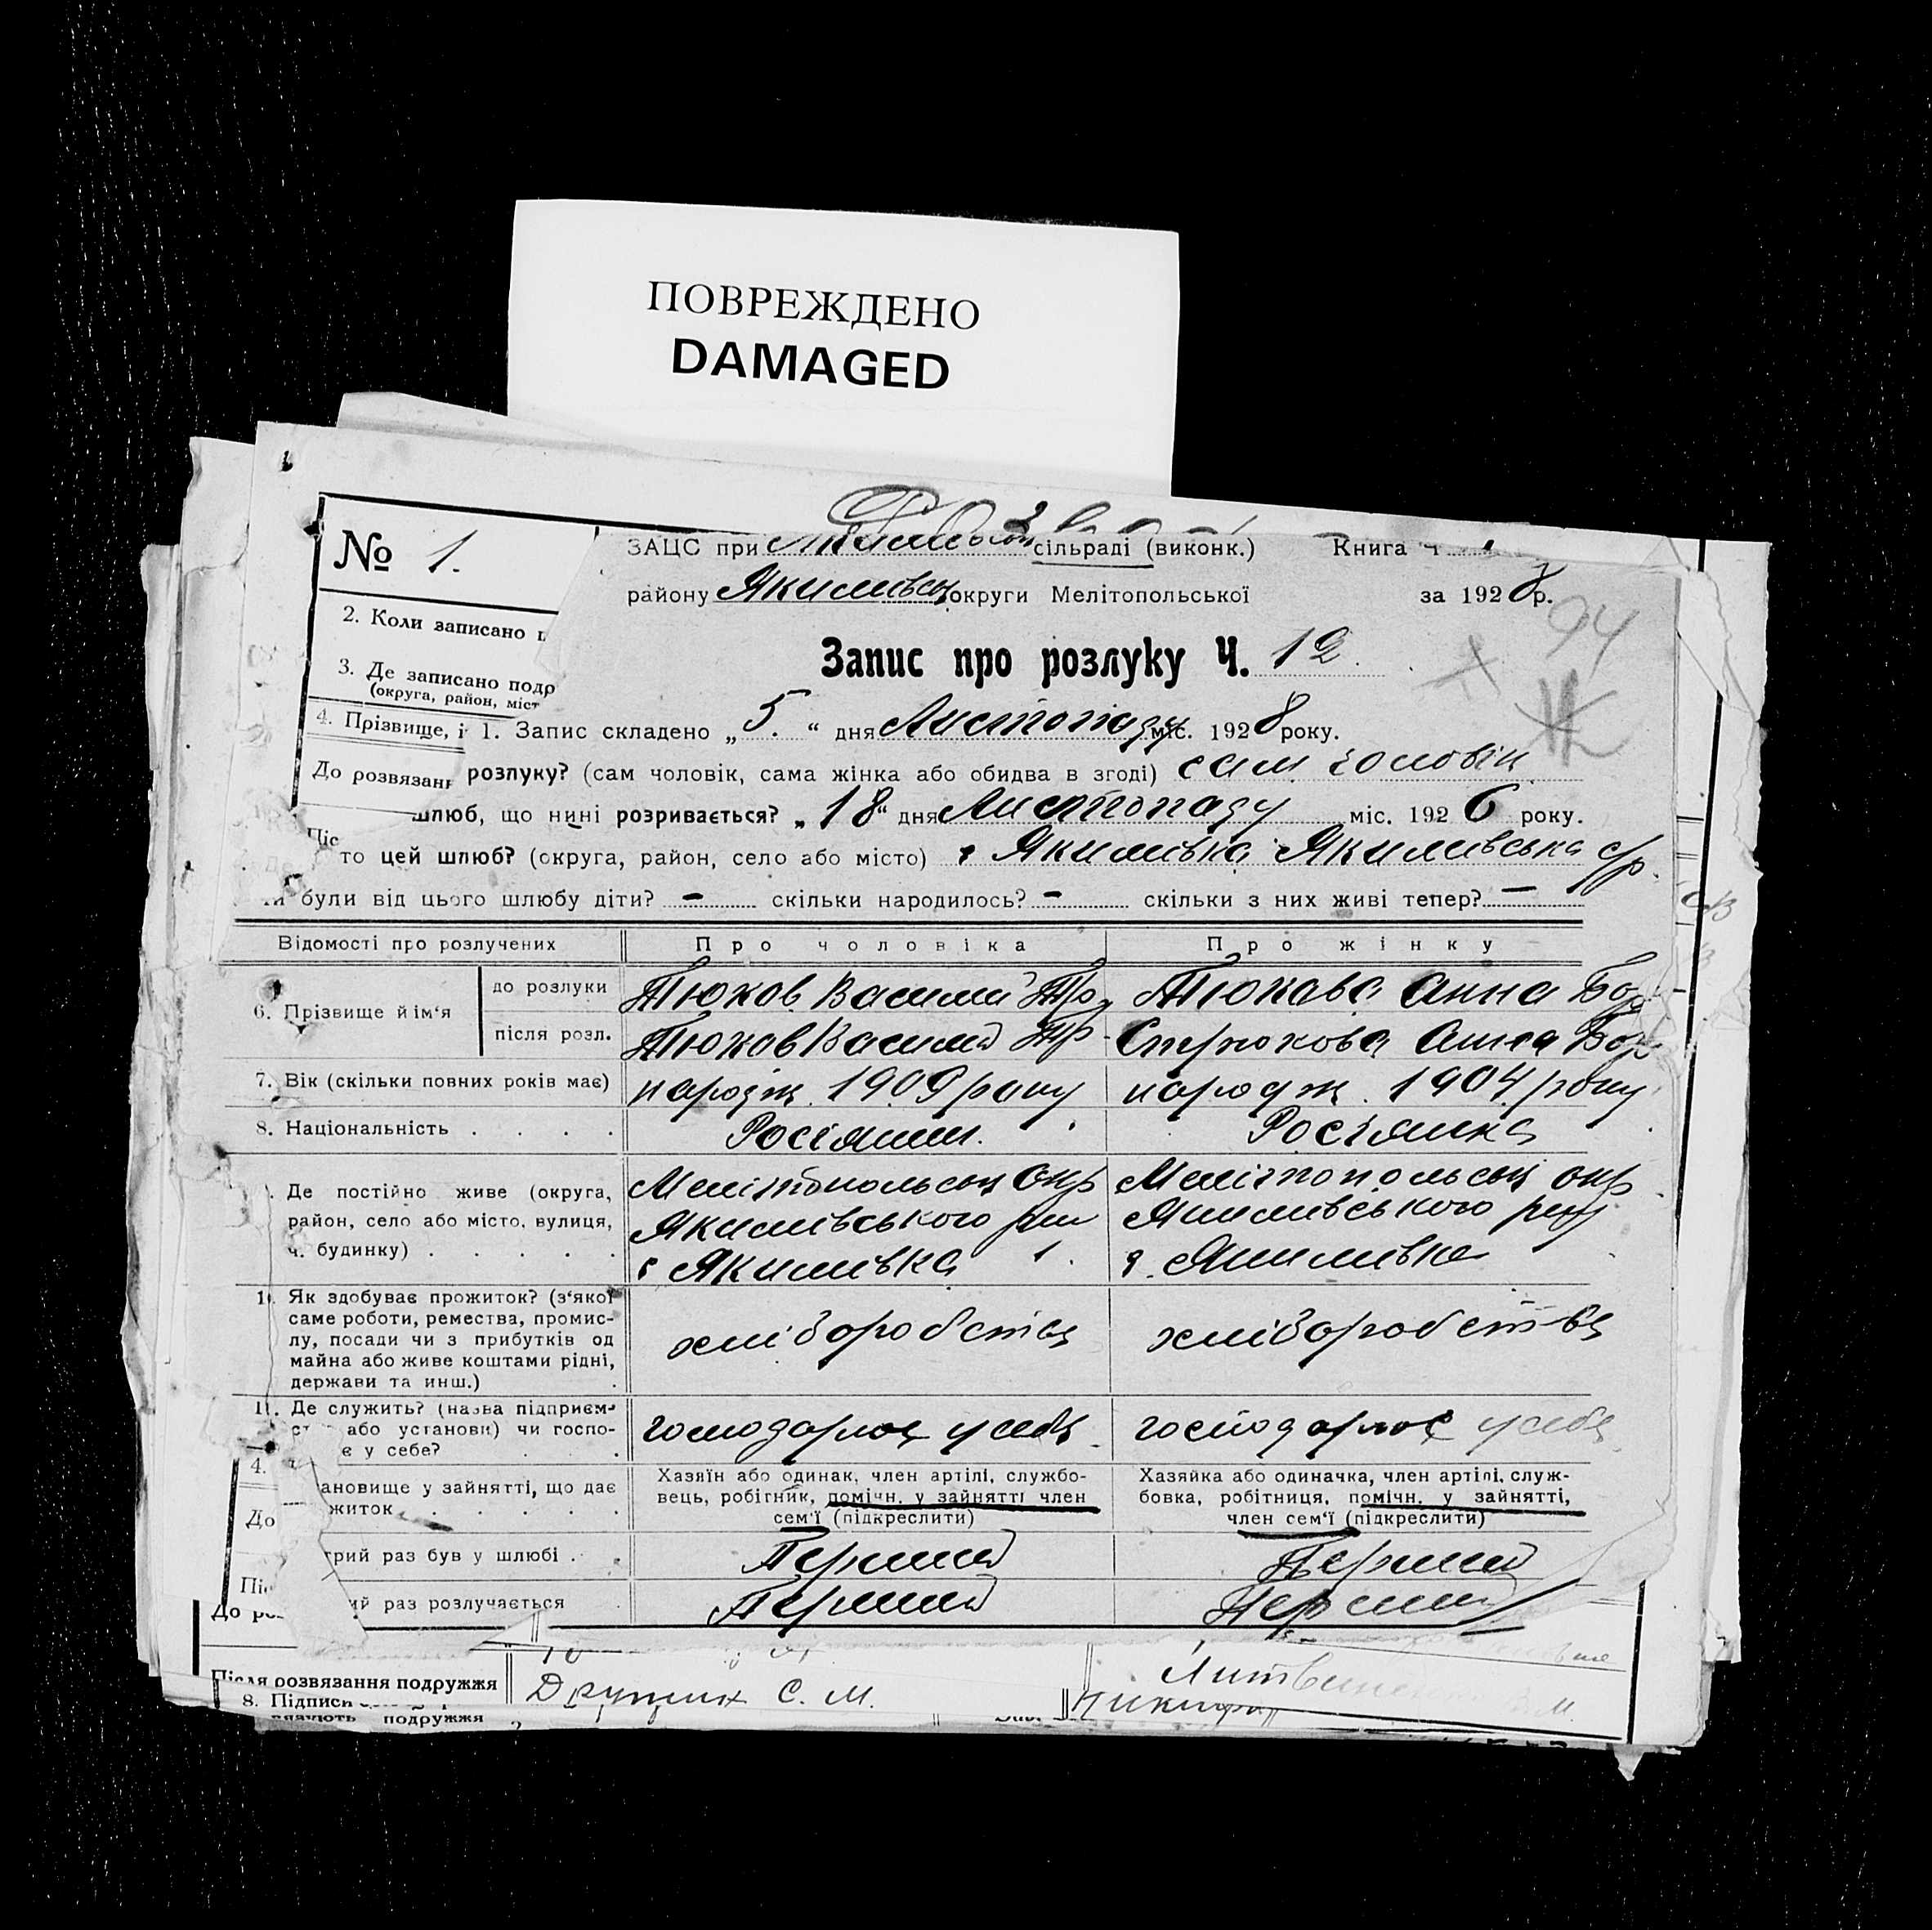 ПОВРЕЖДЕНО
DAMAGED
№ 1.
ЗАЦС при сільраді (виконк.) Книга Ч
району Якимівськ округи Мелітопольської за 1928 р.
94
2. Коли записано
Запис про розлуку Ч. 12
3. Де записано подр
(округа, район, міст
4. Прізвище, і
1. Запис складено „5.“ дня Листопаду міс. 1928 року.
До розвязан
розлуку? (сам чоловік, сама жінка або обидва в згоді) сам чоловік
шлюб, що нині розривається? „18“ дня Листопаду міс. 1926 року.
Піс
то цей шлюб? (округа, район, село або місто) с Якимівка Якимівська с/р.
були від цього шлюбу діти? — скільки народилось? — скільки з них живі тепер? —
Відомості про розлучених Про чоловіка Про жінку
6. Прізвище й ім‘я до розлуки Тюков Василий Тр. Тюкова Анна Бор
після розл. Тюков Василий Тр. Стрюкова Анна Бор
7. Вік (скільки повних років має) народж. 1909 року народж. 1904 року
8. Національність . . . . Росіянин. Росіянка
Де постійно живе (округа, район, село або місто, вулиця, ч. будинку) . . . . .
Мелітопольськ окр Якимівського рай с Якимівка
Мелітопольськ окр Якимівського рай с. Якимівка
1 . Як здобуває прожиток? (з‘якої саме роботи, ремества, промислу, посади чи з прибутків од майна або живе коштами рідні, держави та инш.)
хліборобства хліборобства
11. Де служить? (назва підприєм- або установи) чи госпо- є у себе?
господарює у себе господарює у себе
4.
ановище у зайнятті, що дає
житок . . . . .
До
Хазяїн або одинак, член артілі, службо-
вець, робітник, помічн. у зайнятті член
сем‘ї (підкреслити)
Хазяйка або одиначка, член артілі, служ-
бовка, робітниця, помічн. у зайнятті,
член сем‘ї (підкреслити)
трий раз був у шлюбі . Перший Перший
ий раз розлучається Перший Перший
До ро
Після розвязання подружжя
С. М.
8. Підписи
подружжя